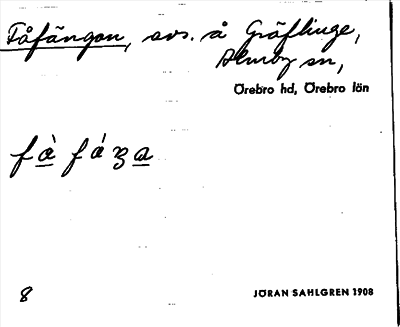 Fåfängan, avs. å Gräflinge,
Almby sn,
Örebro hd, Örebro län
fà fáŋa
8
JÖRAN SAHLGREN 1908